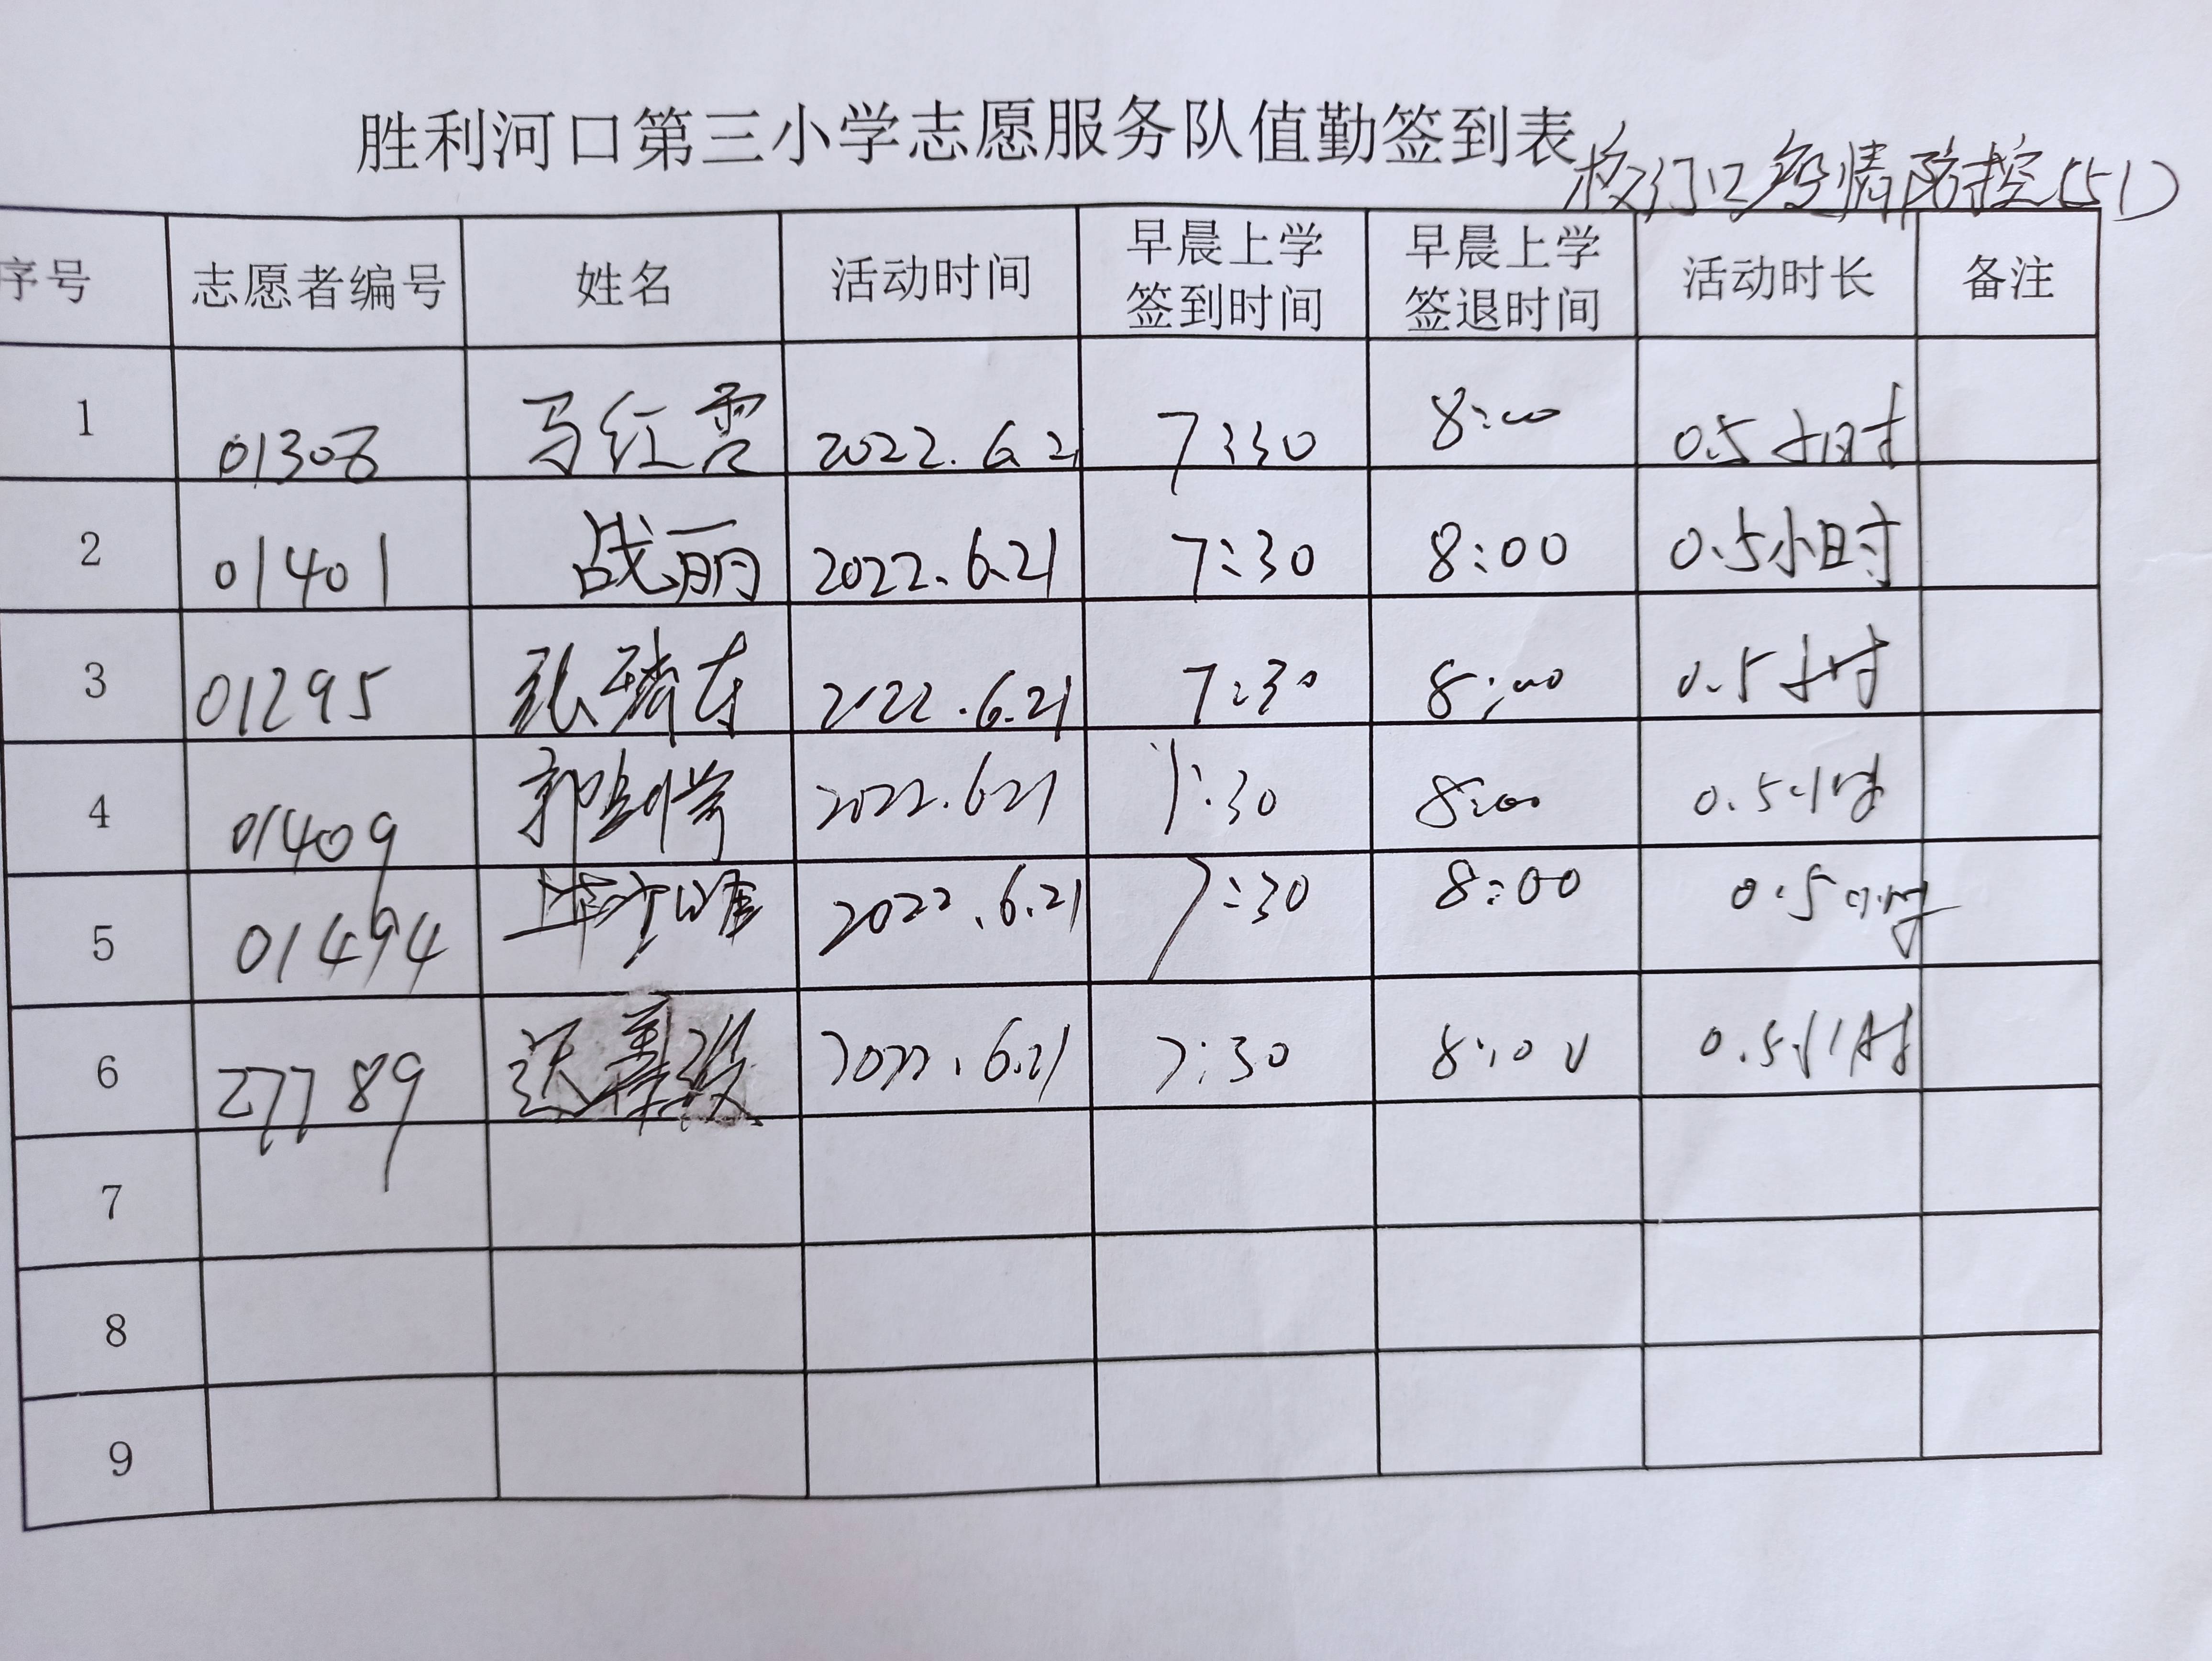 胜利河口第三小学志愿服务队值勤签到表
校门口疫情防控(51)
序号 志愿者编号 姓名 活动时间 早晨上学签到时间 早晨上学签退时间 活动时长 备注
1 01308 马红霞 2022.6.21 7:30 8:00 0.5小时
2 01401 战丽 2022.6.21 7:30 8:00 0.5小时
3 01295 张 2022.6.21 7:30 8:00 0.5小时
4 01409 郭 2022.6.21 7:30 8:00 0.5小时
5 01494 2022.6.21 7:30 8:00 0.5小时
6 27789 2022.6.21 7:30 8:00 0.5小时
7
8
9